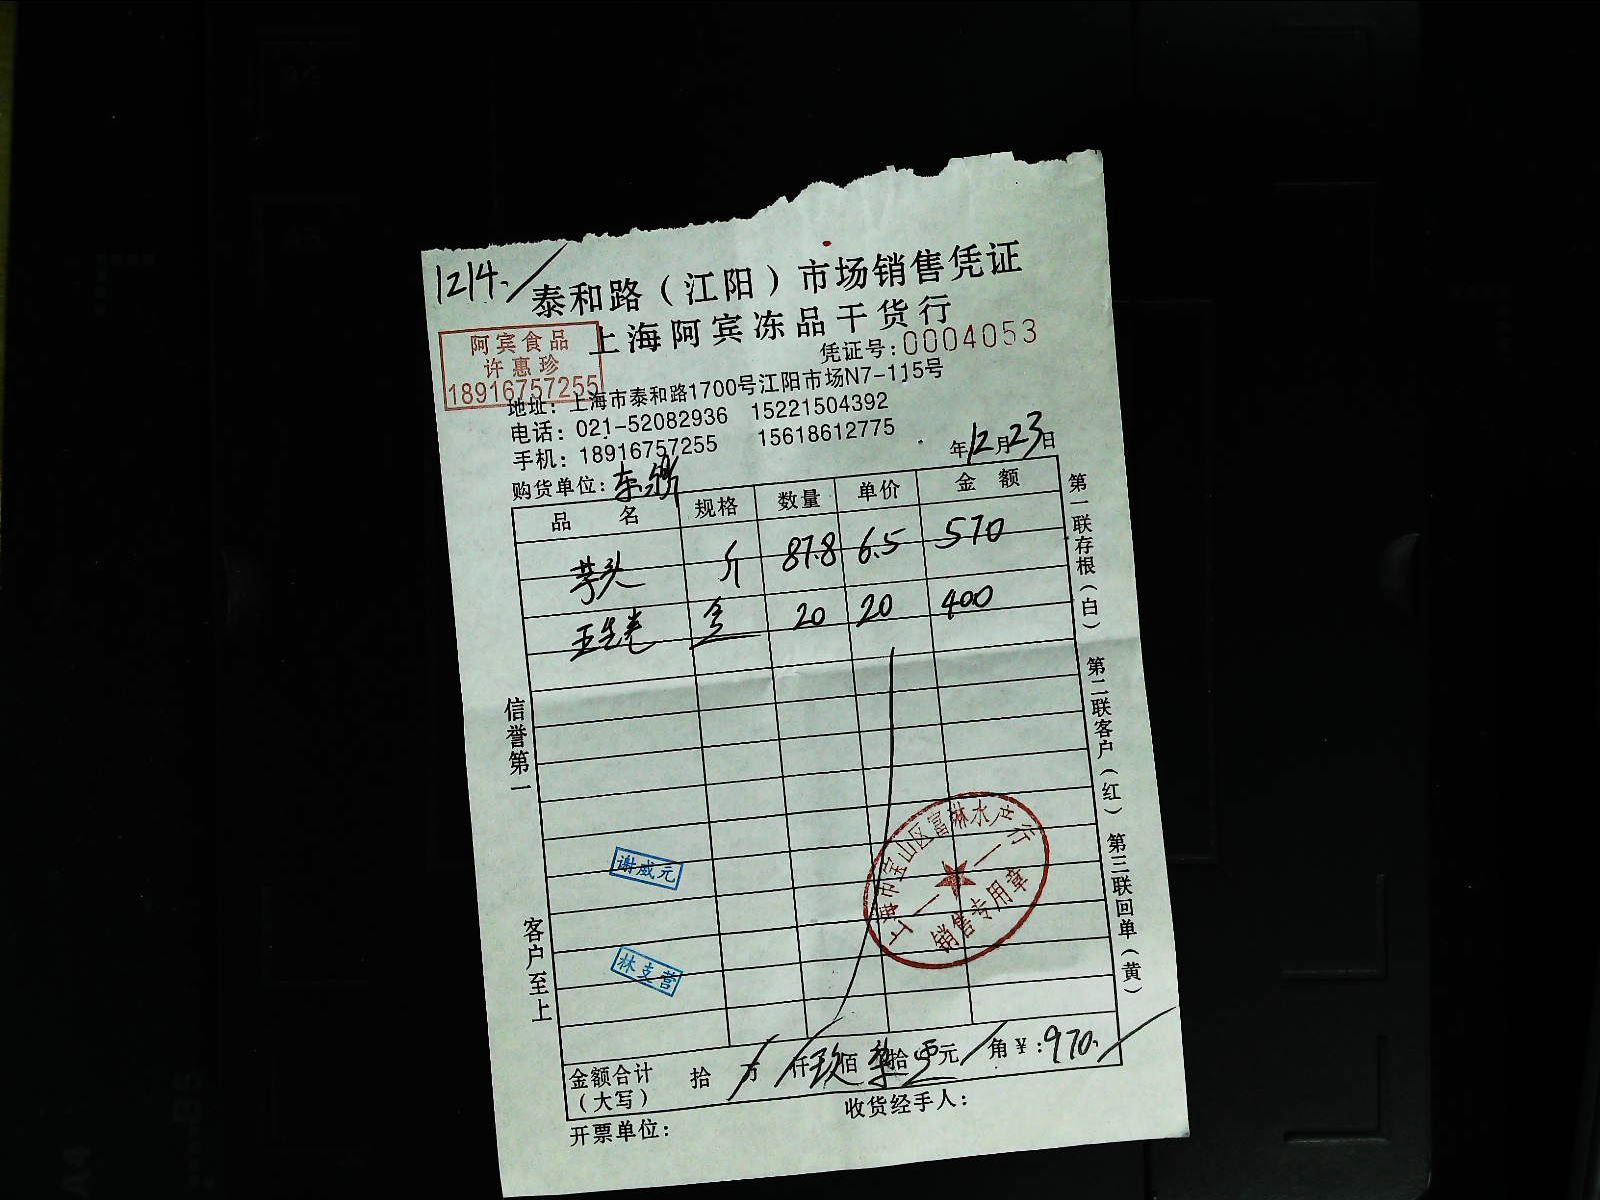 1214.
泰和路（江阳）市场销售凭证
上海阿宾冻品干货行
阿宾食品
许惠珍
18916757255
凭证号：0004053
地址：上海市泰和路1700号江阳市场N7-115号
电话：021-52082936 15221504392
手机：18916757255 15618612775
年12月23日
购货单位：东
品名 规格 数量 单价 金额
芋头 斤 87.8 6.5 570
20 20 400
信誉第一
客户至上
第一联存根（白）
第二联客户（红）
第三联回单（黄）
谢威元
林支营
上海市宝山区富琳水产行
销售专用章
金额合计（大写） 拾 万 仟 玖佰 柒拾 元 角 ¥：970.
开票单位：
收货经手人：